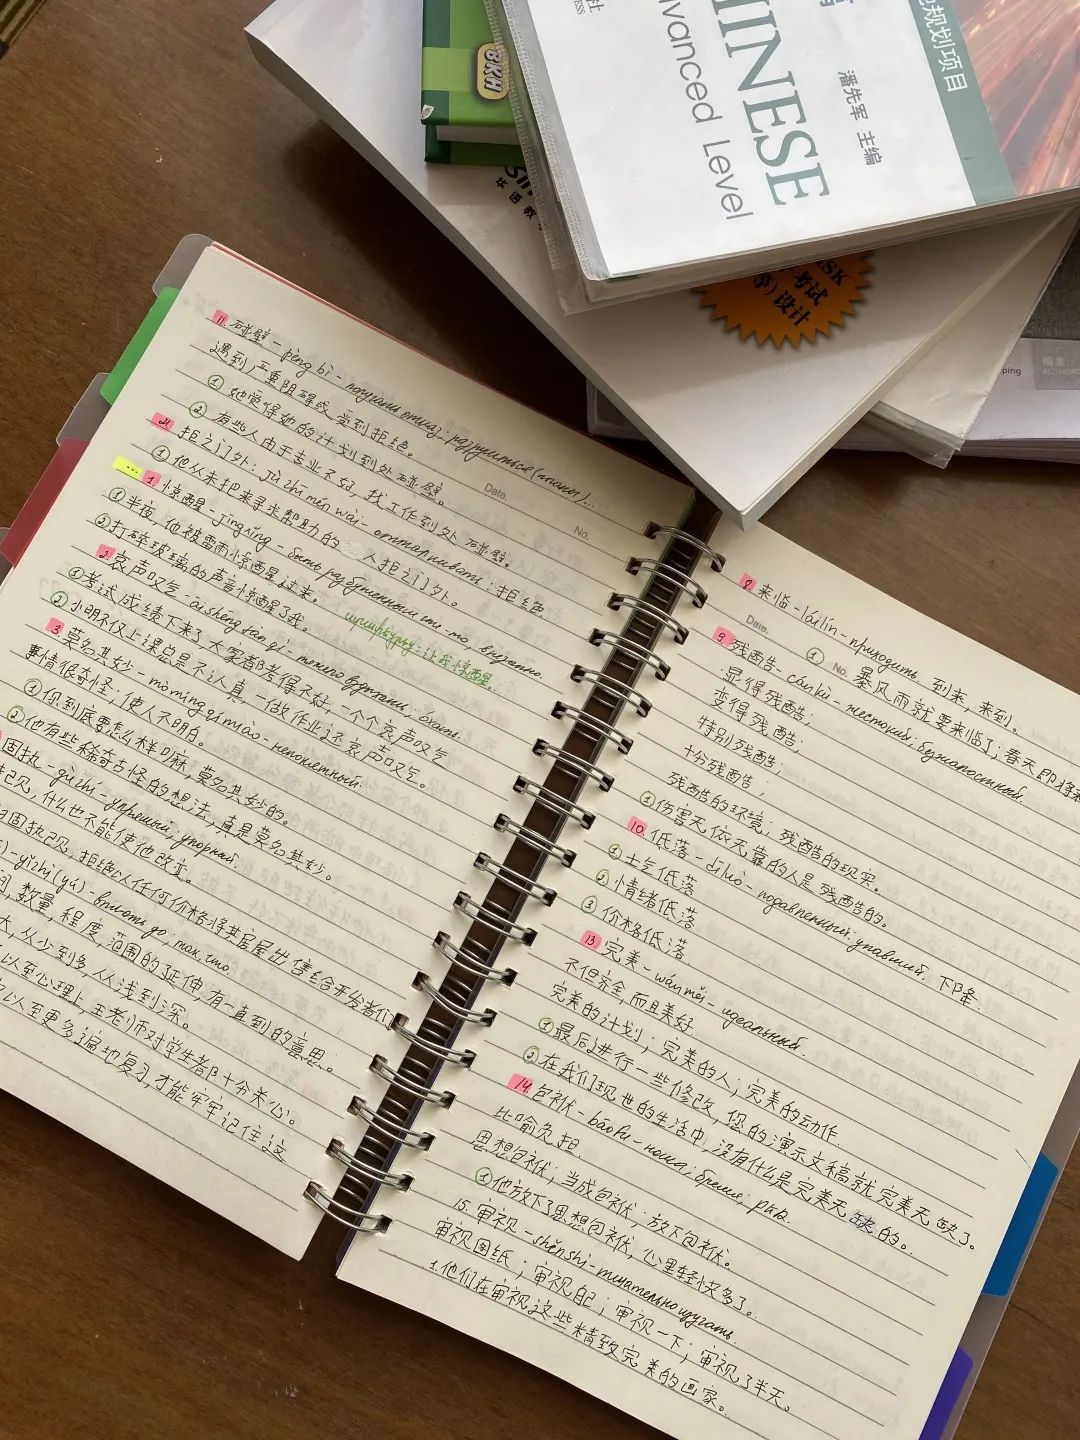 社
ESS
HINESE
dvanced Level
规划项目
潘先军 主编
BKH
Sin
华语教
HSK
考试
设计
ping
11. 碰壁 - pèng bì - получать отказ; разрушиться (планы)...
遇到严重阻碍或受到拒绝。
① 她觉得她的计划到处碰壁。
② 有些人由于专业不好,找工作到处碰壁。
Date.
No.
21 拒之门外: Jù zhī mén wài - отталкивать; 拒绝
① 他从未把来寻求帮助的 人拒之门外。
... 1 惊醒 - jīngxǐng - быть разбуженным чем-то, внезапно.
① 半夜,他被雷雨惊醒过来。
② 打碎玻璃的声音惊醒了我。
让我惊醒。
2 哀声叹气 - āi shēng tàn qì - тяжело вздыхать; охать
① 考试成绩下来了,大家都考得不好,一个个哀声叹气
② 小明不仅上课总是不认真,一做作业还哀声叹气。
3. 莫名其妙 - mò míng qí miào - непонятный
事情很奇怪;使人不明白。
① 你到底要怎么样嘛,莫名其妙的。
② 他有些稀奇古怪的想法,真是莫名其妙。
固执 - gùzhí - упрямый, упорный.
己见,什么也不能使他改变。
固执己见,拒绝以任何价格将其房屋出售给开发者们
- yǐzhì (yú) - вплоть до; так, что.
数量,程度,范围的延伸,有一直到的意思。
大,从少到多,从浅到深。
以至心理上,王老师对学生都十分关心。
以至更多遍地复习,才能牢牢记住这
8. 来临 - láilín - приходить 到来,来到。
Date.
① No. 暴风雨就要来临了;春天即将来
9. 残酷 - cánkù - жестокий; безжалостный.
显得残酷;
变得残酷;
特别残酷;
十分残酷;
残酷的环境;残酷的现实。
① 伤害无依无靠的人是残酷的。
10. 低落 - dīluò - подавленный; упавший, 下降.
① 士气低落
② 情绪低落
③ 价格低落
13 完美 - wánměi - идеальный.
不但齐全,而且美好
完美的计划;完美的人;完美的动作
① 最后进行一些修改,您的演示文稿就完美无缺了。
② 在我们现世的生活中,没有什么是完美无缺的。
14. 包袱 - bāofu - ноша; бремя; рак.
比喻负担
思想包袱;当成包袱;放下包袱。
① 他放下了思想包袱,心里轻快多了。
15. 审视 - shěnshì - тщательно изучать.
审视图纸;审视自己;审视一下;审视了半天。
1. 他们在审视这些精致完美的画家。